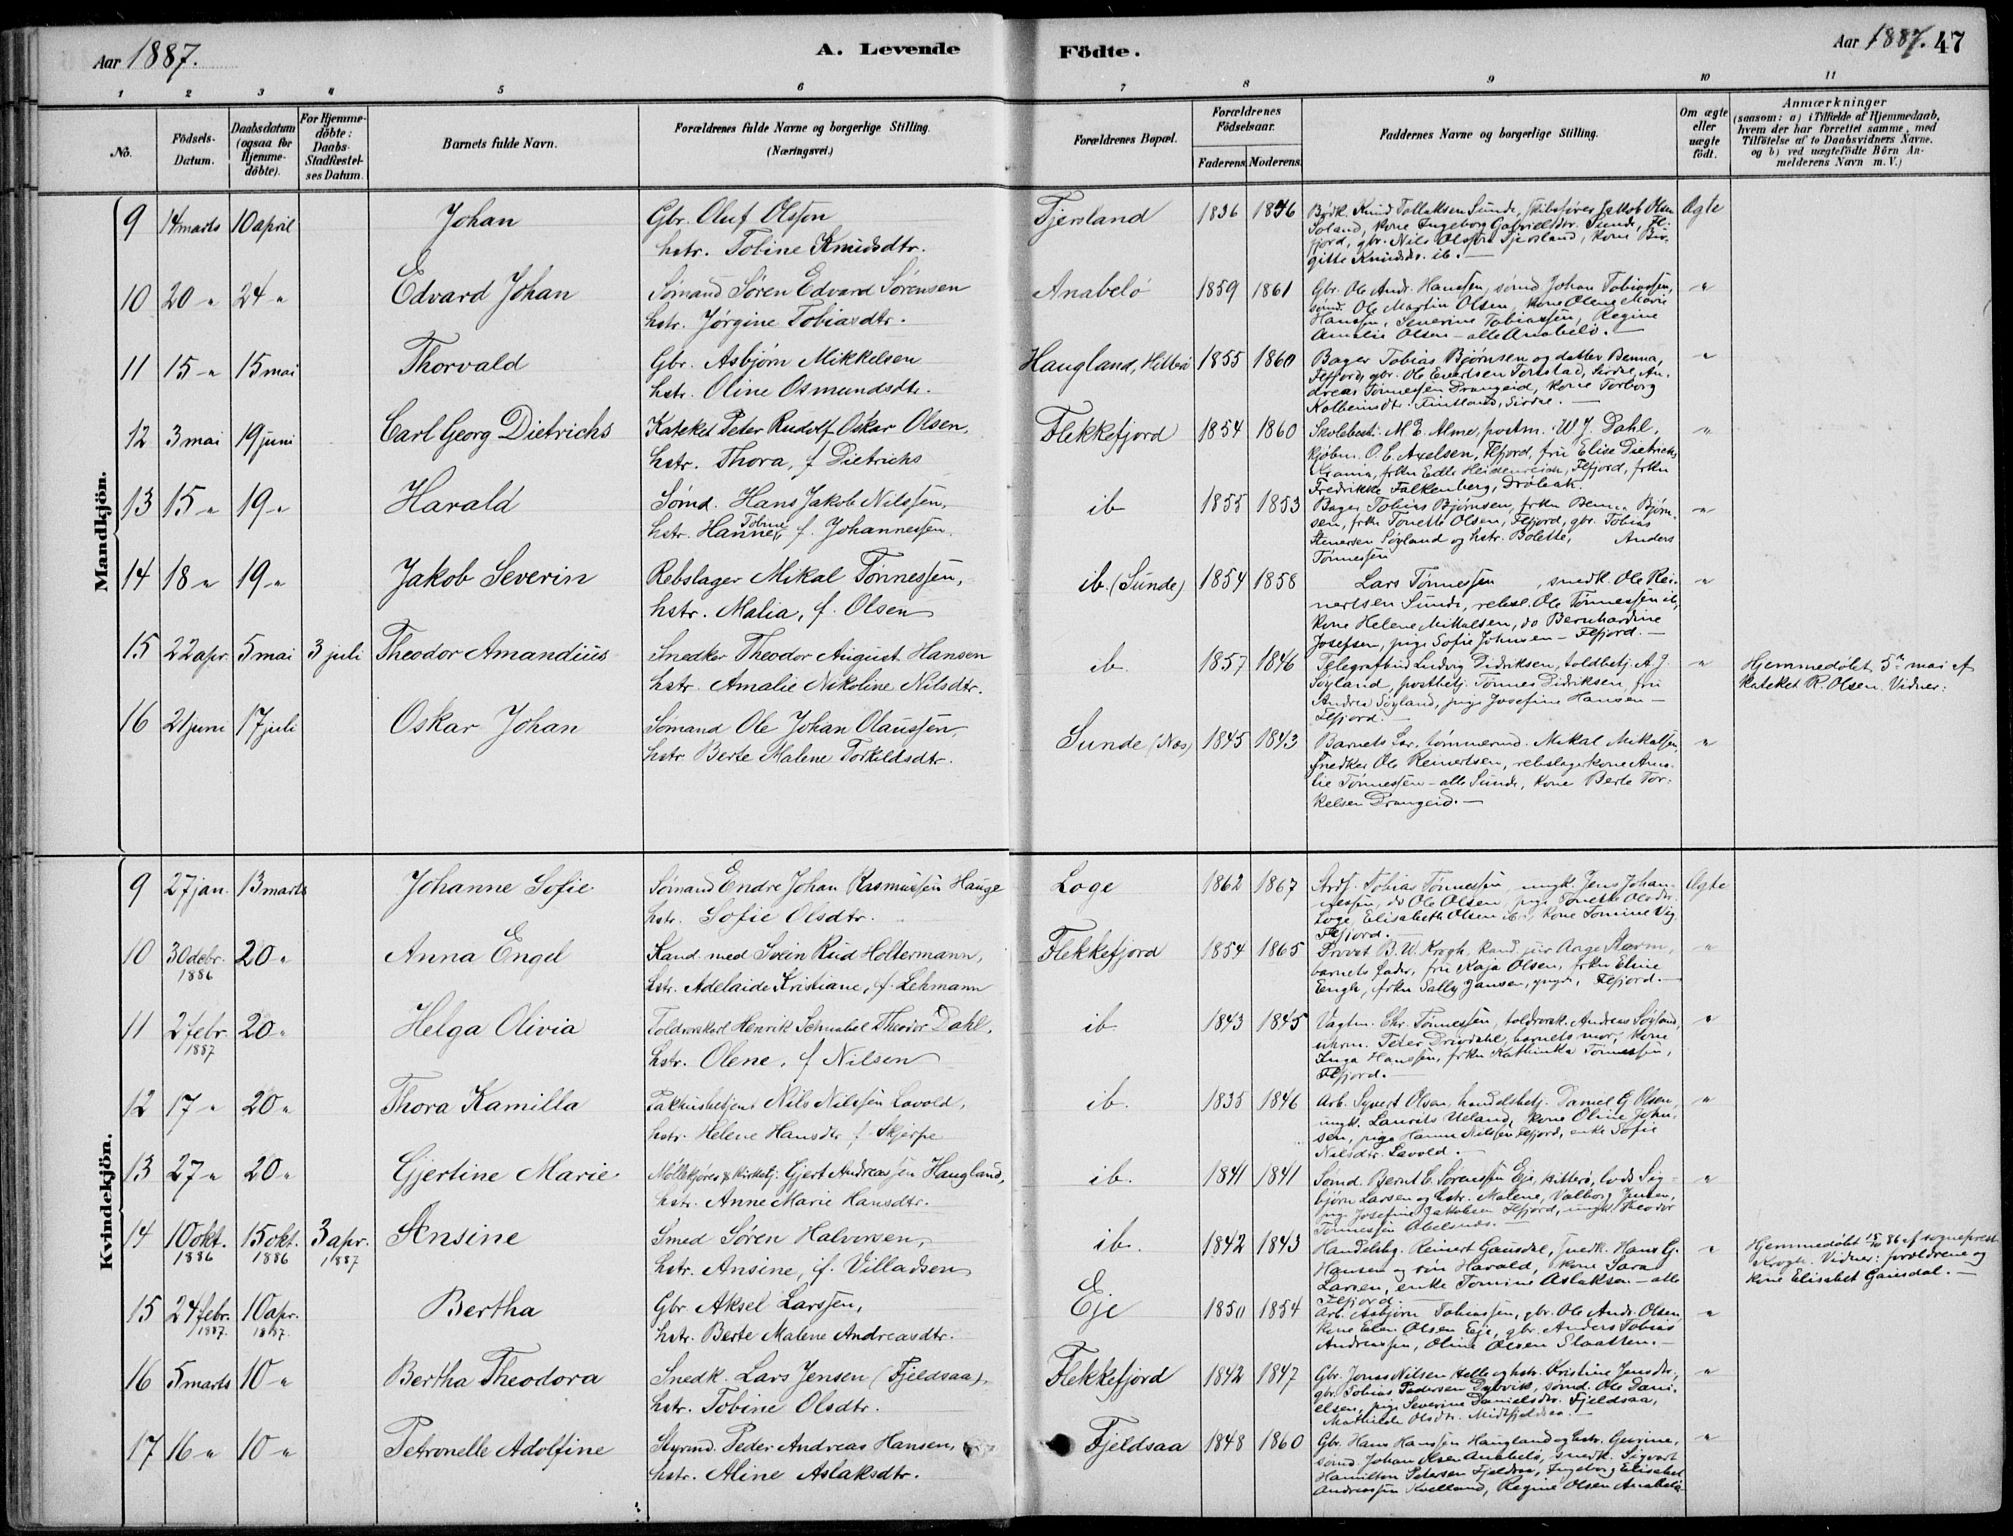 Aar 1887.
A. Levende
Födte.
Aar 1887. 47
1 2 3 4 5 6 7 8 9 10 11
No.
Födsels-
Datum.
Daabsdatum
(ogsaa for
Hjemme-
döbte).
For Hjemme-
döbte:
Daabs-
Stadfæstel-
ses Datum.
Barnets fulde Navn.
Forældrenes fulde Navne og borgerlige Stilling.
(Næringsvei.)
Forældrenes Bopæl.
Forældrenes
Födselsaar.
Faderens. Moderens.
Faddernes Navne og borgerlige Stilling.
Om ægte
eller
uægte
födt.
Anmærkninger
(saasom: a) i Tilfælde af Hjemmedaab,
hvem der har forrettet samme, med
Tilföielse af to Daabsvidners Navne,
og b) ved uægtefödte Börn An-
melderens Navn m. V.)
Mandkjön.
9 14 marts 10 april Johan Gbr. Oluf Olssen
hstr. Tobine Knudsdtr.
Fjersland 1836 1846 Bødk. Knud Tollaksen Sunde, Skibsfører Jakob Olsen
Soland, kone Ingeborg Gabrielsdtr. Sunde, Fl-
fjord, gbr. Nils Olssen Fjersland, kone Bir-
gitte Knudsdtr. ib. — Ægte
10 20 " 24 " Edvard Johan Sømand Søren Edvard Sørensen
hstr. Jørgine Tobiasdtr.
Anabelø 1859 1861 Gbr. Ole Andr. Hanssen, sømd Johan Tobiassen,
sømd. Ole Martin Olsen, kone Olene Marie
Hansen, Severine Tobiassen, Regine
Amalie Olsen — alle Anabelø. — "
11 15 " 15 mai Thorvald Gbr. Asbjørn Mikkelsen
hstr. Oline Osmundsdtr.
Haugland, Hitterø 1855 1860 Bager Tobias Bjørnsen og datter Benna,
Flfjord, gbr. Ole Evertsen Tonstad, Sirdal, An-
dreas Tønnessen Drangeid, kone Torborg
Kolbeinsdtr. Fintland, Sirdal. — "
12 3 mai 19 juni Carl Georg Dietrichs Kateket Peter Rudolf Oskar Olsen,
hstr. Thora, f. Dietrichs
Flekkefjord 1854 1860 Skolebest. M. E. Alme, postm. W. J. Dahl,
kjøbm. O. E. Axelsen, Flfjord, fru Elise Dietrichs
Krania, frkn Edle Heidenreich, Flfjord, frkn
Fredrikke Falkenberg, Drøbak. "
13 15 " 19 " Harald Sømd. Hans Jakob Nilssen,
hstr. Hanne Tobine, f. Johannessen.
ib 1855 1853 Bager Tobias Bjørnsen, frkn Benna Bjørn-
sen, frkn Tonette Olsen, Flfjord, gbr. Tobias
Stenersen Søyland og hstr. Bolette, Anders
Tønnessen "
14 18 " 19 " Jakob Severin Rebslager Mikal Tønnessen,
hstr. Malia, f. Olsen
ib. (Sunde) 1854 1858 Lars Tønnessen, snedk. Ole Rei-
nertsen Sunde, rebsl. Ole Tønnessen ib,
kone Helene Mikkelsen, do Bernhardine
Josefsen, pige Sofie Johnsen — Flfjord. — "
15 22 apr. 5 mai 3 juli Theodor Amandius Snedker Theodor August Hansen
hstr. Amalie Nikoline Nilsdtr.
ib. 1857 1846 Telegrafbud Ludvig Didriksen, toldbetj. A. J.
Søyland, postbetj. Tønnes Didriksen, fru
Andrea Søyland, pige Josefine Hansen —
Flfjord. — " Hjemmedøbt 5te mai af
kateket R. Olsen. Vidner:
16 21 juni 17 juli Oskar Johan Sømand Ole Johan Olaussen,
hstr. Berte Malene Torkildsdtr.
Sunde (Næs) 1845 1843 Barnets far, tømmermd. Mikal Mikalsen,
snedker Ole Reinertsen, rebslagerkone Ama-
lie Tønnessen — alle Sunde, kone Berte Tor-
kelsen Drangeid. — "
Kvindekjön.
9 27 jan. 13 marts Johanne Sofie Sømand Endre Johan Rasmussen Hauge
hstr. Sofie Olsdtr.
Loge 1862 1867 Ardf. Tobias Tønnessen, ungk. Jens Johan-
nessen, do Ole Olsen, pige Tonette Olsdtr.
Loge, Elisabeth Olsen ib., kone Tomine Vig
Flfjord. — Ægte
10 30 debr. 1886 20 " Anna Engel Kand. med Svein Rud Holtermann,
hstr. Adelaide Kristiane, f. Lehmann
Flekkefjord 1854 1865 Provst B. W. Krogh, kand. jur Aage Skavm,
barnets fader, fru Kaja Olsen, frkn Eline
Engh, frkn Sally Jansen, Flfjord. — "
11 2 febr. 1887 20 " Helga Olivia Toldrorskarl Henrik Schnabel Theodor Dahl,
hstr. Olene, f. Nilsen
ib 1843 1845 Vagtm. Chr. Tønnessen, toldrorsk. Andreas Søyland,
uhrm. Peter Drivdahl, barnets mor, kone
Inga Hanssen, frkn Kathinka Tønnessen,
Flfjord. — "
12 17 " 20 " Thora Kamilla Pakhusbetjent Nils Nilssen Lavold,
hstr. Helene Hansdtr f. Skjerpe
ib. 1835 1846 Arb. Syvert Olsen, handelsbetj. Daniel G. Olsen,
ungk. Laurits Ueland, kone Oline John-
sen, pige Hanna Nilssen Flfjord, enke Sofie
Nilsdtr. Lavold. — "
13 27 " 20 " Gjertine Marie Møllekjører & kirketj. Gjert Andreassen Haugland,
hstr. Anne Marie Hansdtr.
ib. 1841 1841 Sømd. Bernt C. Sørenssen Eje, Hitterø, lods Sig-
bjørn Larsen og hstr. Malene, Valborg Jensen,
pige Josefine Jakobsen Flfjord, ungk. Theodor
Tønnessen Abelsnæs. — "
14 10 okt. 1886 15 okt. 1886 3 apr. 1887 Ansine Smed Søren Halvorsen,
hstr. Ansine, f. Villadsen
ib. 1842 1843 Handelsbg. Reinert Gausdal, snedk. Hans G.
Hansen og søn Harald, kone Sara
Larsen, enke Tomine Aslaksen — alle
Flfjord. " Hjemmedøbt 15/10 86 af sogneprest
Krogh. Vidner: forældrene og
kone Elisabet Gausdal. —
15 24 febr. 1887. 10 apr. 1887. Bertha Gbr. Aksel Larssen,
hstr. Berte Malene Andreasdtr.
Eje 1850 1854 Arb. Asbjørn Tobiassen, gbr. Ole Andr. Olsen,
kone Elen Olsen Eje, gbr. Anders Tobias
Andreassen, Oline Olsen Slaatten. — "
16 5 marts 10 " Bertha Theodora Snedk. Lars Jensen (Fjeldsaa),
hstr. Tobine Olsdtr.
Flekkefjord 1842 1847 Gbr. Jonas Nilsen Helle og hstr. Kristine Jensdtr,
gbr. Tobias Pedersen Dybvik, sømd. Ole Dani-
elsen, pige Severine Danielsdtr. Fjeldsaa,
Mathilde Olsdtr. Midtfjeldsaa. — "
17 16 " 10 " Petronelle Adolfine Styrmd. Peder Andreas Hansen,
hstr. Aline Aslaksdtr.
Fjeldsaa 1848 1860 Gbr. Hans Hanssen Haugland og hstr. Gurine,
sømd. Johan Olsen Anabelø, snedk. Sigvart
Hamilton Petersen Fjeldsaa, Ingeborg Elisabet
Andreassen Kvelland, Regine Olsen Anabelø "